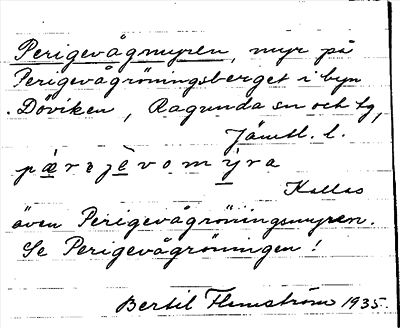 Perigevågmyren, myr på
Perigevågröningsberget i byn
Döviken, Ragunda sn och tg,
Jämtl. l.
pærejèvomyra
Kallas
även Perigevågröningsmyren.
Se Perigevågröningen!
Bertil Flemström 1935.